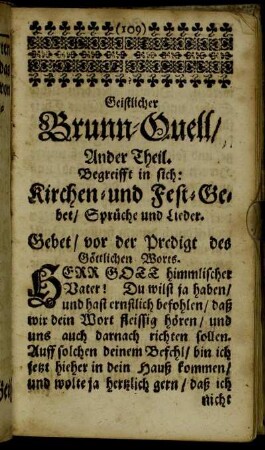 (109)
Geistlicher
Brunn-Quell/
Ander Theil.
Begreifft in sich:
Kirchen- und Fest-Ge-
bet/ Sprüche und Lieder.
Gebet/ vor der Predigt des
Göttlichen Worts.
HERR GOTT himmlischer
Vater! Du wilst ja haben/
und hast ernstlich befohlen/ daß
wir dein Wort fleissig hören/ und
uns auch darnach richten sollen.
Auff solchen deinem Befehl/ bin ich
jetzt hieher in dein Hauß kommen/
und wolte ja hertzlich gern/ daß ich
nicht